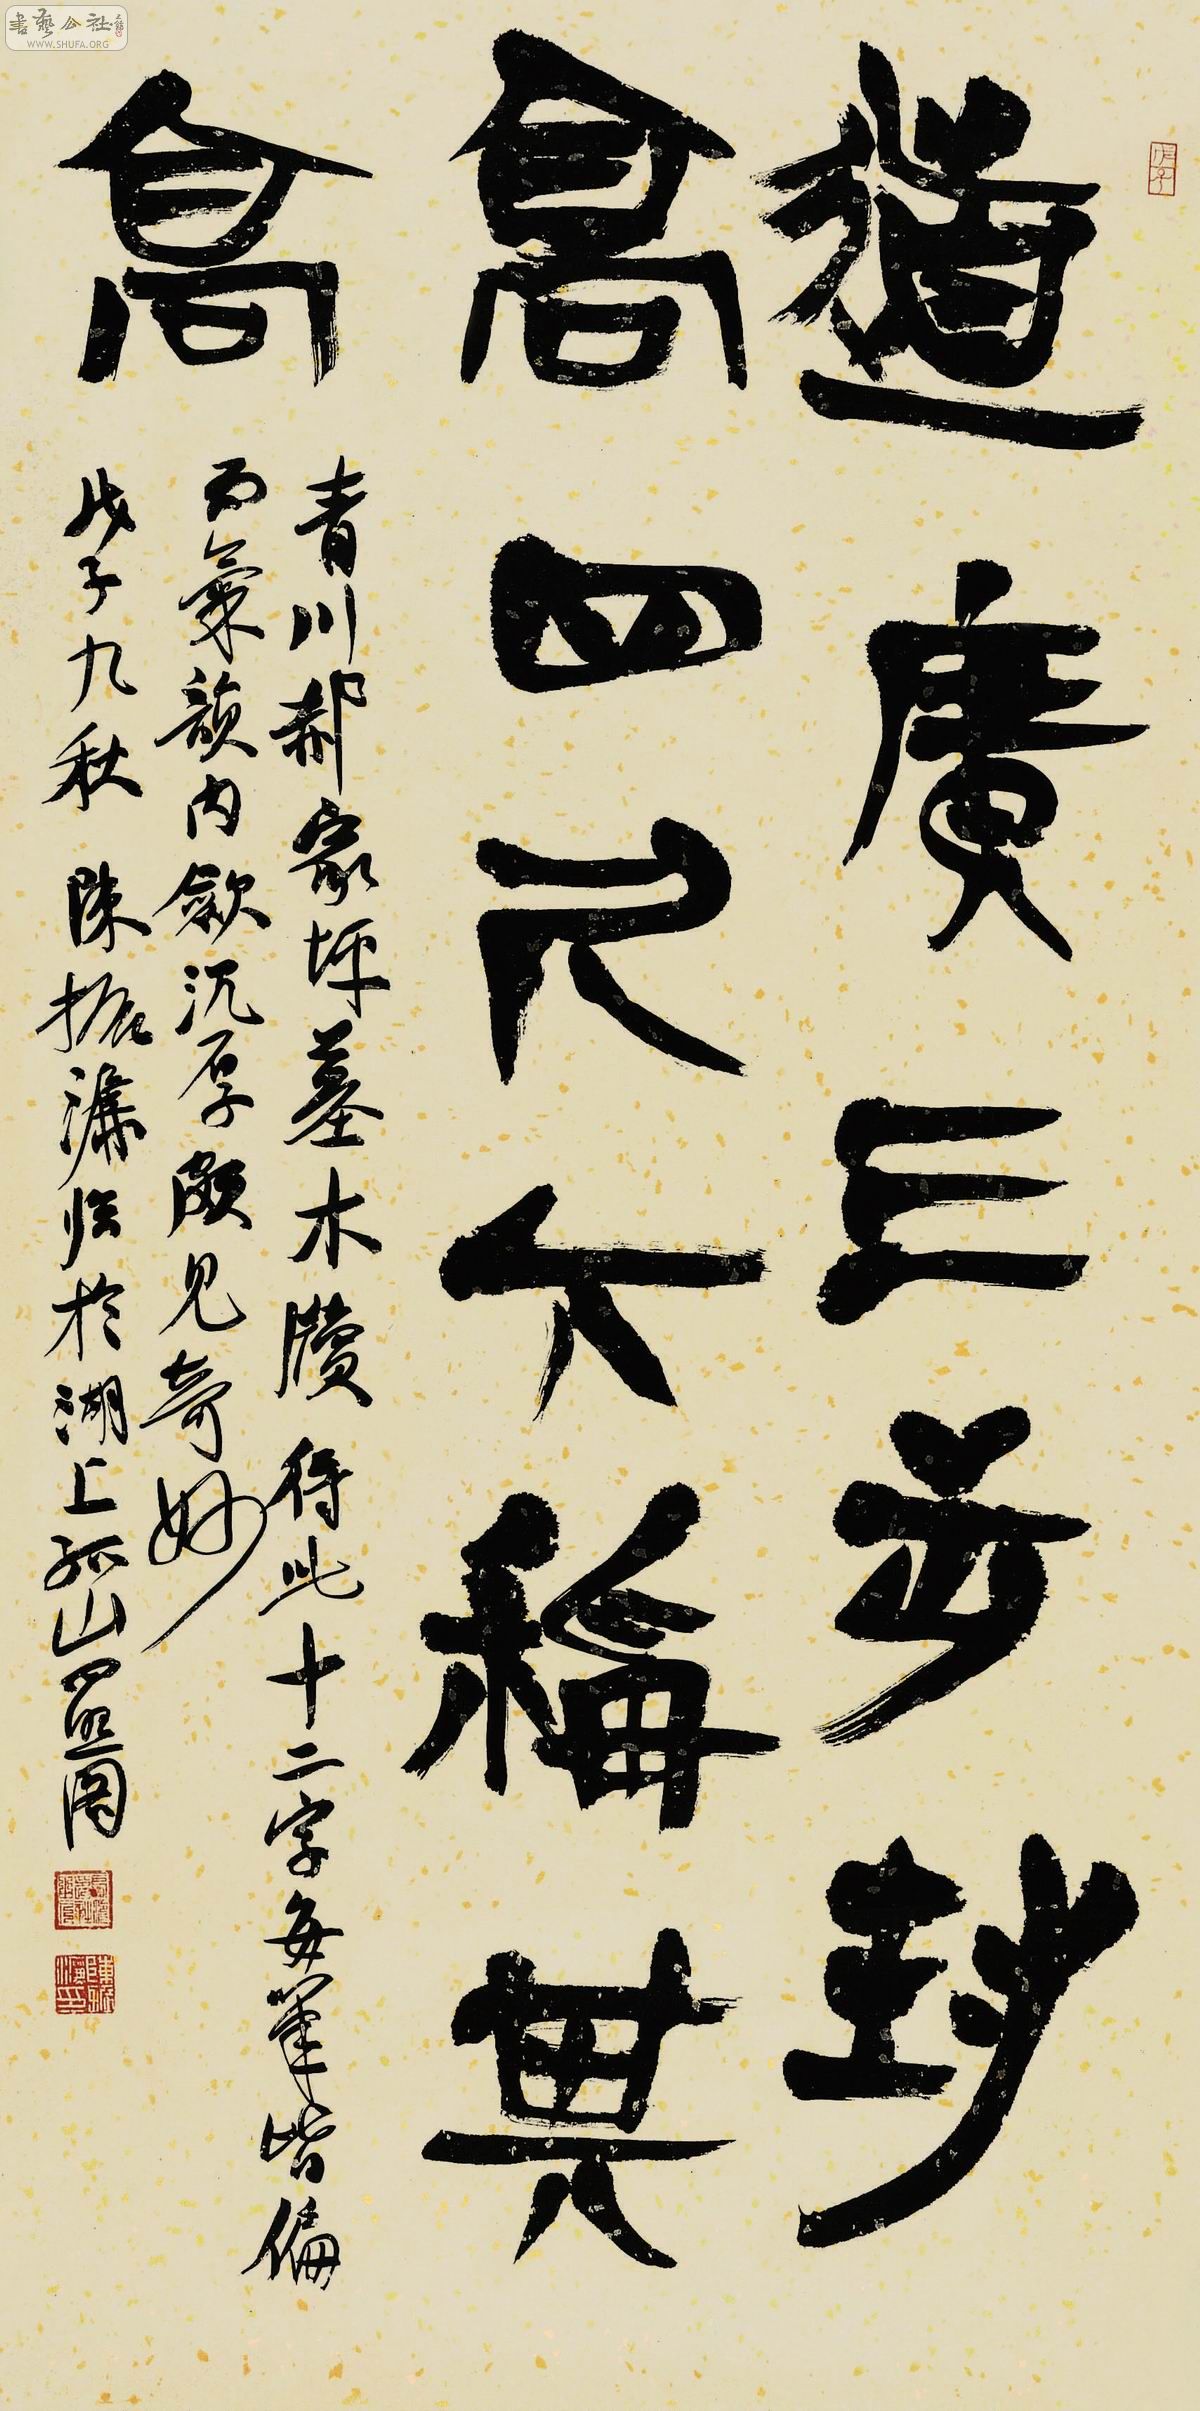 書藝公社
WWW.SHUFA.ORG
戊子
道廣三步封
高四尺大稱其
高
青川郝家坪墓木牘得此十二字每筆皆偏
而氣韻内斂沉厚頗見奇妙
戊子九秋 陳振濂临於湖上孤山四照阁
陳振濂印